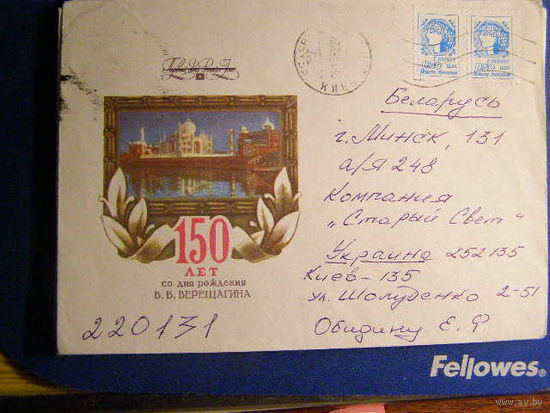 КИЕВ
Пошта України
150
ЛЕТ
СО ДНЯ РОЖДЕНИЯ
В. В. ВЕРЕЩАГИНА
220131
Беларусь
г. Минск, 131
а/я 248
Компания
„Старый Свет"
Украина 252135
Киев-135
ул. Шолуденко 2-51
Обидину Е. Ф
Fellowes®
www.ay.by